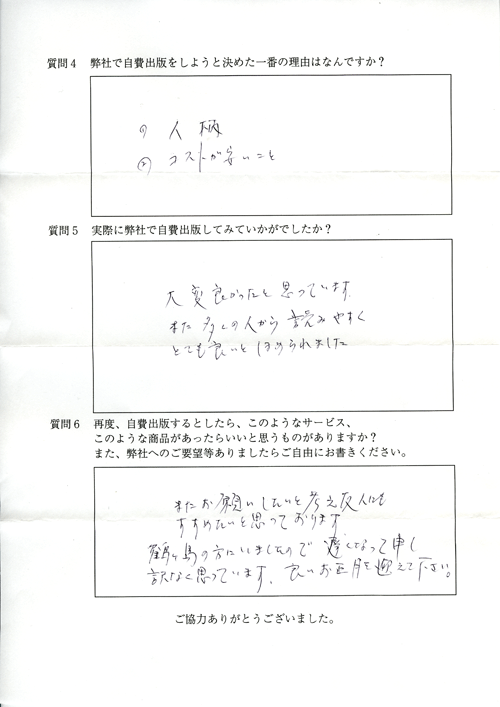 質問4　弊社で自費出版をしようと決めた一番の理由はなんですか？
① 人柄
② コストが安いこと
質問5　実際に弊社で自費出版してみていかがでしたか？
大変良かったと思っています。
また多くの人から読みやすく
とても良いとほめられました
質問6　再度、自費出版するとしたら、このようなサービス、
このような商品があったらいいと思うものがありますか？
また、弊社へのご要望等ありましたらご自由にお書きください。
またお願いしたいと考え友人にも
すすめたいと思っております
鶴ヶ島の方にいましたので遅くなって申し
訳なく思っています。良いお正月を迎えて下さい。
ご協力ありがとうございました。